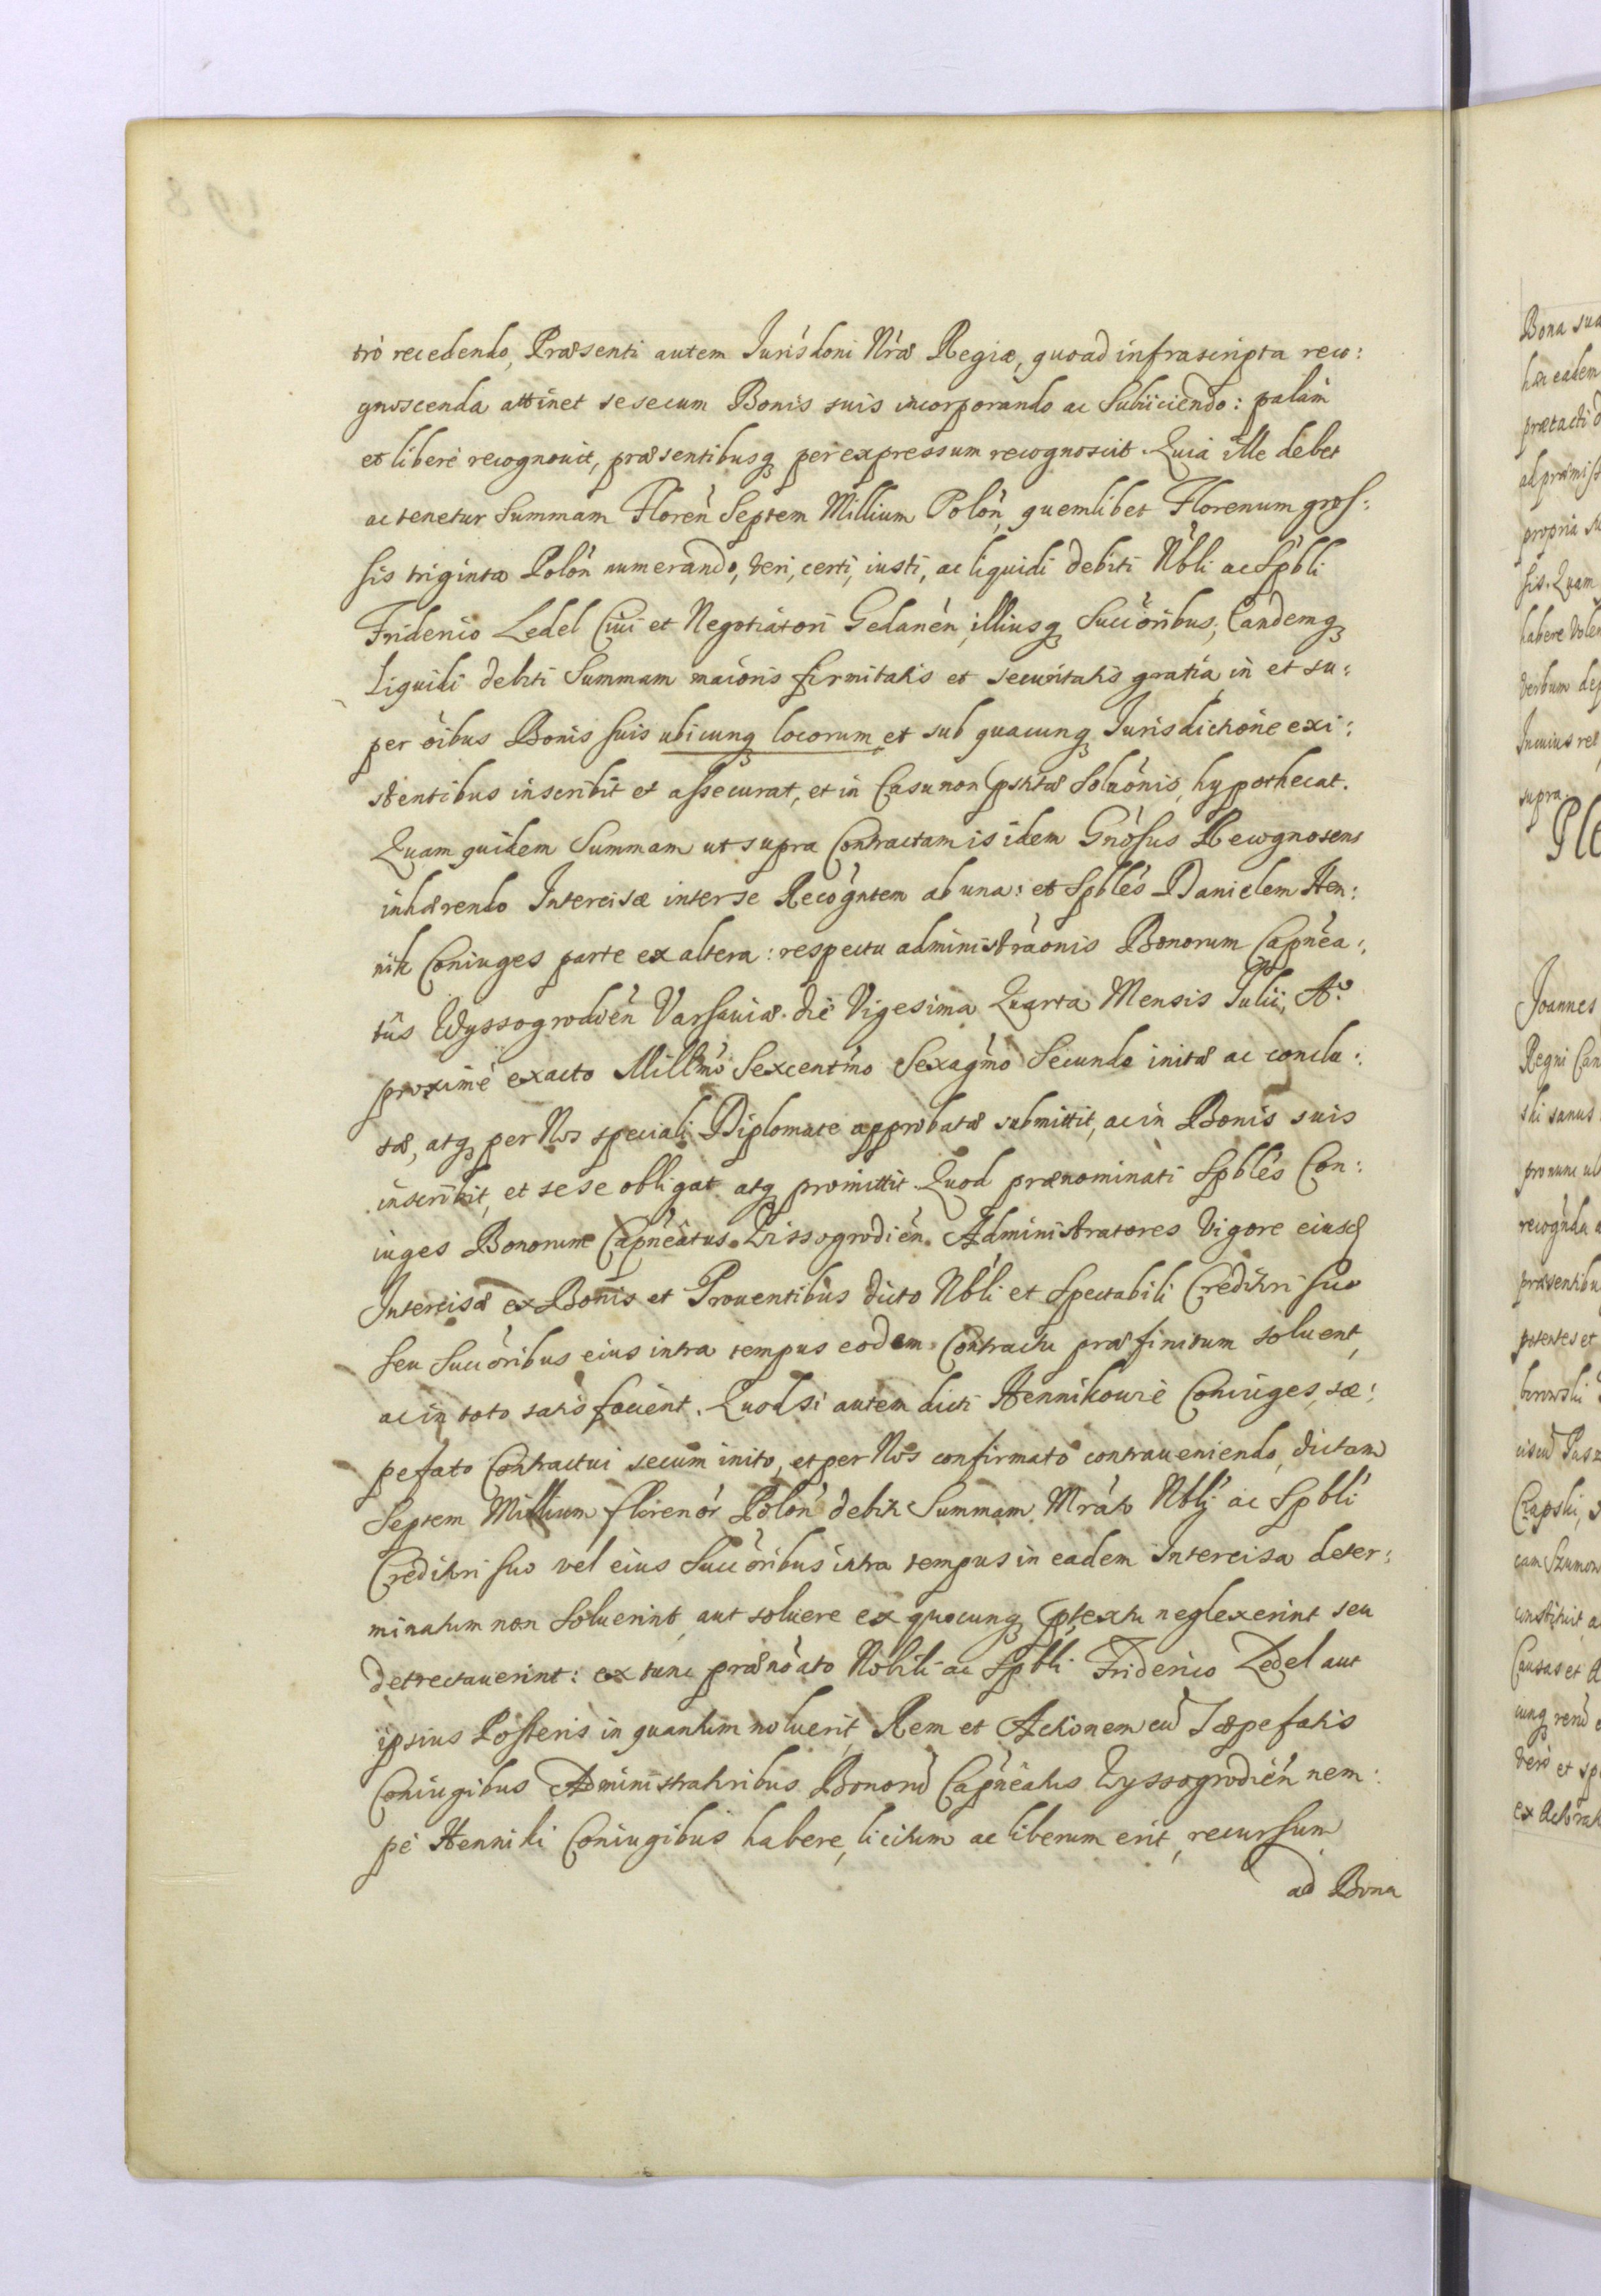 trò recedendo, Præsenti autem Jurisdoni Nræ Regiæ, quoad infrascripta reco:
gnoscenda attinet sese cum Bonis suis incorporando ac Subijciendo: palàm
et liberè recognovit, præsentibusq per expressum recognoscit. Quia ille debet
ac tenetur Summam Floren Septem Millium Polon, quemlibet Florenum gros:
sis triginta Polon numerando, veri, certi, iusti, ac liquidi debiti Nbli ac Spbli
Friderico Ledel Ciui et Negotiatori Gedanen, illiusq Succoribus, Eandemq
Liquidi debiti Summam maioris firmitatis et securitatis gratia, in et su:
per oibus Bonis suis ubicunq locorum, et sub quacunq Jurisdictione exi:
stentibus inscribit et assecurat, et in Casu non pstitæ Soluonis, hypothecat.
Quam quidem Summam ut supra Contractam is idem Gnosus Recognoscens
inhærendo Intercisæ inter se Recogntem ab una: et Spbles Danielem Hen:
nik Coniuges parte ex altera: respectu administraonis Bonorum Capnea:
tus Wyssogroden Varsauiæ die Vigesima Quarta Mensis Julii, Aº
proximè exacto Millmo Sexcentmo Sexagmo Secundo initæ ac conclu:
sæ, atq per Nos speciali Diplomate approbatæ submittit, ac in Bonis suis
inscribit, et sese obligat atq promittit. Quod prænominati Spbles Con:
iuges Bonorum Capneatus Wissogrodien Administratores Vigore eiusd
Intercisæ ex Bonis et Prouentibus dicto Nbli et Spectabili Creditri suo
seu Succoribus eius intra tempus eodem Contractu præfinitum soluent,
ac in toto satis facient. Quod si autem dicti Hennikowie Coniuges, sæ:
pefato Contractui secum inito, et per Nos confirmato contraueniendo, dictam
Septem Millium florenor Polon debiti Summam Mrato Nbli ac Spbli
Creditri suo vel eius Succoribus intra tempus in eadem Intercisa deter:
minatum non soluerint, aut soluere ex quocunq ptextu neglexerint seu
detrectauerint: ex tunc prænoato Nobili ac Spbli Friderico Ledel aut
ipsius Posteris in quantum noluerit Rem et Actionem cu Sæpefatis
Coniugibus Administratoribus Bonoru Capneatus Wyssogrodien nem:
pè Henniki Coniugibus habere, licitum ac liberum erit, recursum
ad Bona
Bona sua
hac eadem
prætacti
propria
sis. Quam
habere
verbum
In cuius rei
supra.
Joannes
Regni Can
ski sanus
pro nunc
recognda
præsentibu
potentes et
borowski
Czapski,
constituit
Causas et
vero et sp